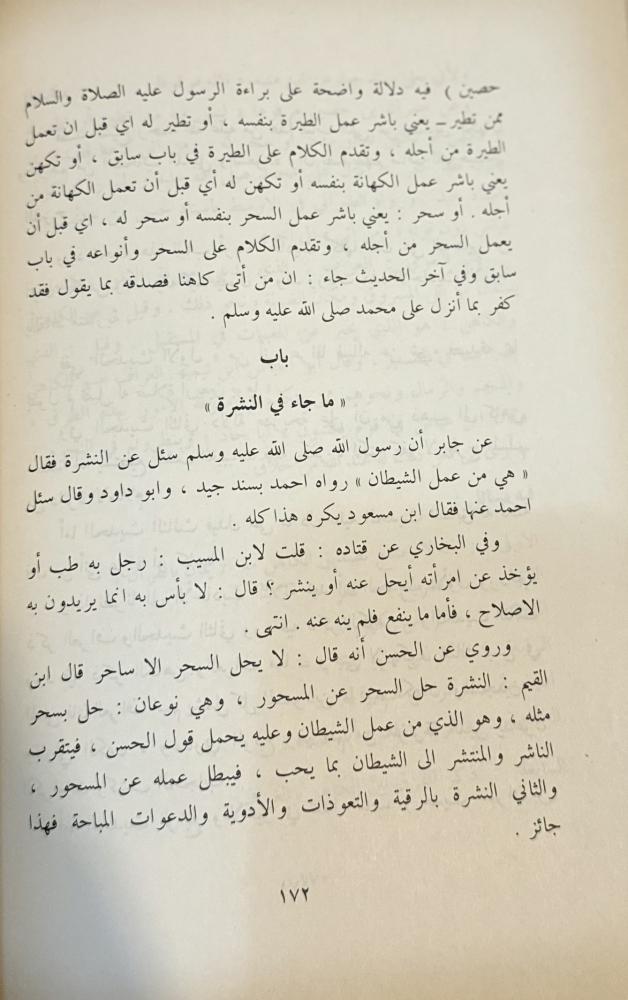 حصين ) فيه دلالة واضحة على براءة الرسول عليه الصلاة والسلام
ممن تطير ــ يعني باشر عمل الطيرة بنفسه ، أو تطير له اي قبل ان تعمل
الطيرة من أجله ، وتقدم الكلام على الطيرة في باب سابق ، أو تكهن
يعني باشر عمل الكهانة بنفسه أو تكهن له أي قبل أن تعمل الكهانة من
أجله . أو سحر : يعني باشر عمل السحر بنفسه أو سحر له ، اي قبل أن
يعمل السحر من أجله ، وتقدم الكلام على السحر وأنواعه في باب
سابق وفي آخر الحديث جاء : ان من أتى كاهنا فصدقه بما يقول فقد
كفر بما أنزل على محمد صلى الله عليه وسلم .
باب
« ما جاء في النشرة »
عن جابر أن رسول الله صلى الله عليه وسلم سئل عن النشرة فقال
« هي من عمل الشيطان » رواه احمد بسند جيد ، وابو داود وقال سئل
احمد عنها فقال ابن مسعود يكره هذا كله .
وفي البخاري عن قتاده : قلت لابن المسيب : رجل به طب أو
يؤخذ عن امرأته أيحل عنه أو ينشر ؟ قال : لا بأس به انما يريدون به
الاصلاح ، فأما ما ينفع فلم ينه عنه . انتهى .
وروي عن الحسن أنه قال : لا يحل السحر الا ساحر قال ابن
القيم : النشرة حل السحر عن المسحور ، وهي نوعان : حل بسحر
مثله ، وهو الذي من عمل الشيطان وعليه يحمل قول الحسن ، فيتقرب
الناشر والمنتشر الى الشيطان بما يحب ، فيبطل عمله عن المسحور ،
والثاني النشرة بالرقية والتعوذات والأدوية والدعوات المباحة فهذا
جائز .
١٧٢